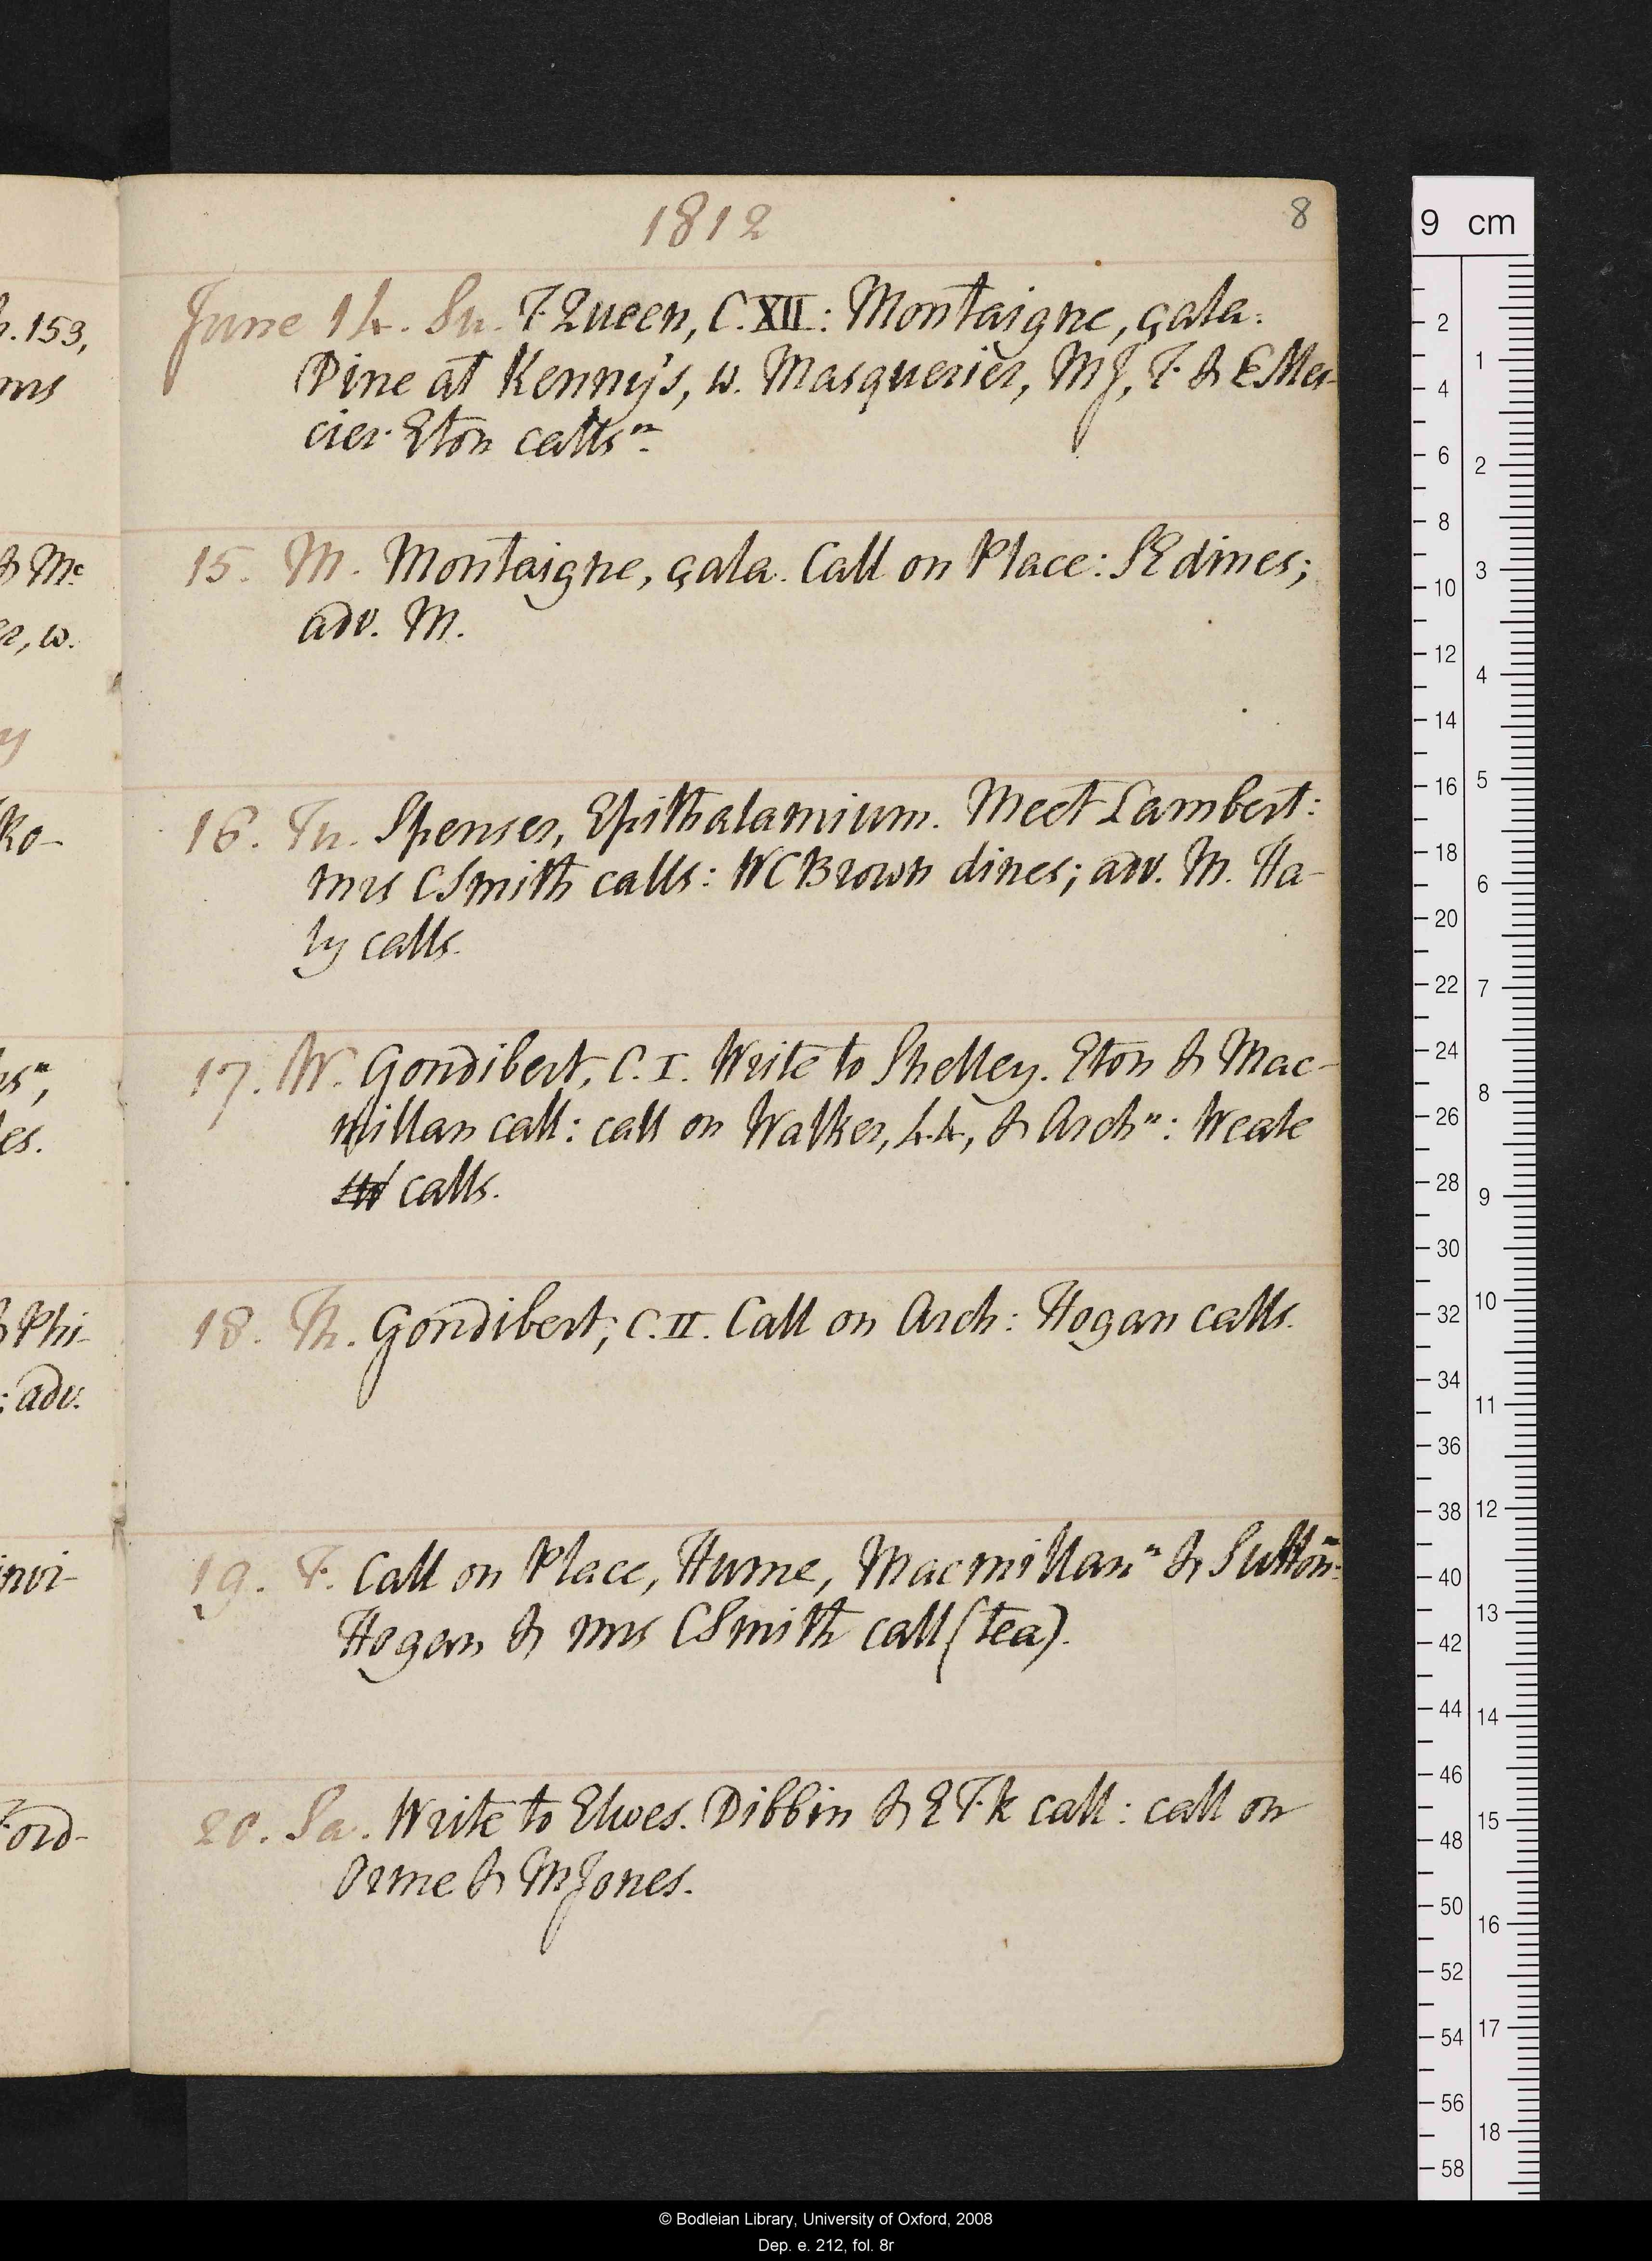 1812
8
June 14. Su. F. Queen, C. XII: Montaigne, çala.
Dine at Kenny's, w. Masquerier, MJ, F. & E Mer-
cier. Eton calls n.
15. M. Montaigne, çala. Call on Place: SE dines;
adv. M.
16. Tu. Spenser, Epithalamium. Meet Lambert:
mrs C Smith calls: W C Brown dines; adv. M. Ha-
ly calls.
17. W. Gondibert, C. I. Write to Shelley. Eton & Mac-
millan call: call on Walker, 44, & Arch n: Weale
calls.
18. Th. Gondibert, C. II. Call on Arch: Hogan calls.
19. F. Call on Place, Hume, Macmillan n & Sutton n:
Hogan & mrs C Smith call (tea).
20. Sa. Write to Elwes. Dibbin & E F. k call: call on
Orme & M Jones.
h. 153,
mrs
& Mc
er, w.
y
Ro-
ns n,
les.
& Phi-
: adv.
invi-
Ford-
9 cm
2
4
6
8
10
12
14
16
18
20
22
24
26
28
30
32
34
36
38
40
42
44
46
48
50
52
54
56
58
1
2
3
4
5
6
7
8
9
10
11
12
13
14
15
16
17
18
© Bodleian Library, University of Oxford, 2008
Dep. e. 212, fol. 8r